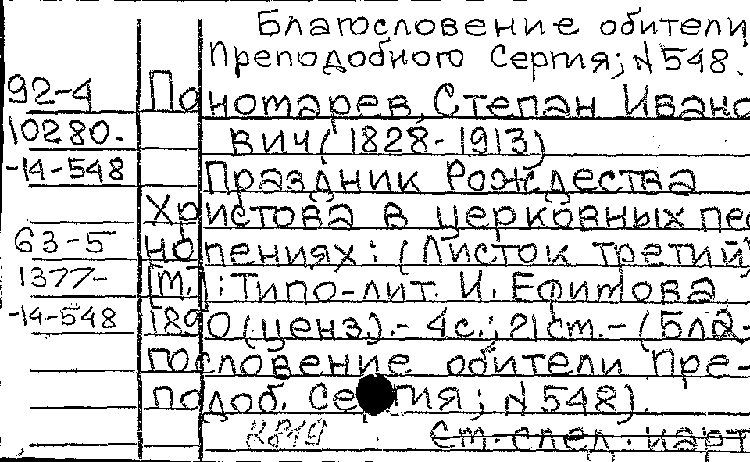 Благословение обители
Преподобного Сергия; N 548.
92-4 По
номарев, Степан Ивано
10280. вич (1828-1913)
-14-548 Праздник Рождества
Христова в церковных пес
63-5 нопениях: (Листок третий)
1377- [М.]: Типо-лит. И. Ефимова
-14-548 1890 (ценз). - 4 с.; 21 см. - (Бла-
гословение обители Пре-
подоб. Сергия; N 548).
К819 См. след. карт